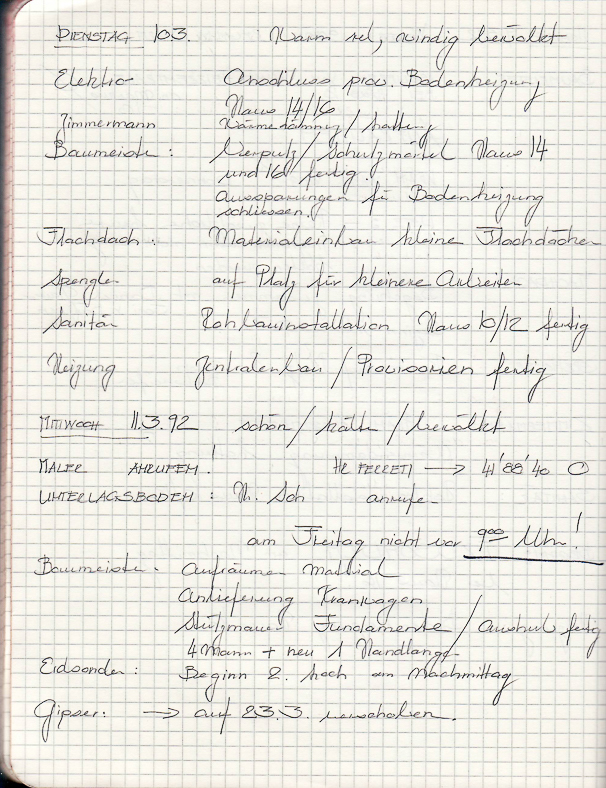 DIENSTAG 103. Warm sel, windig bewölkt
Elektro Anschluss prov. Bodenheizung
Haus 14/16
Zimmermann Wärmedämmung / Lattung
Baumeister : Verputz / Schutzmörtel Haus 14
und 16 fertig.
Aussparungen für Bodenheizung
schliessen.
Flachdach : Materialeinbau kleine Flachdächer
Spengler auf Platz für kleinere Arbeiten
Sanitär Rohbauinstallation Haus 10/12 fertig
Heizung Zentralenbau / Provisorien fertig
MITTWOCH 11.3.92 schön / kälter / bewölkt
MALER ANRUFEN! HR FERRETI → 41'88'40
UNTERLAGSBODEN : H. Sch anrufe-
am Freitag nicht vor 9⁰⁰ Uhr!
Baumeister. Aufräumen Material
Anlieferung Kranwagen
Stützmauer Fundamente / Aushub fertig
4 Mann + neu 1 Handlanger
Erdsonden : Beginn 2. Loch am Nachmittag
Gipser: → auf 23.3. verschoben.